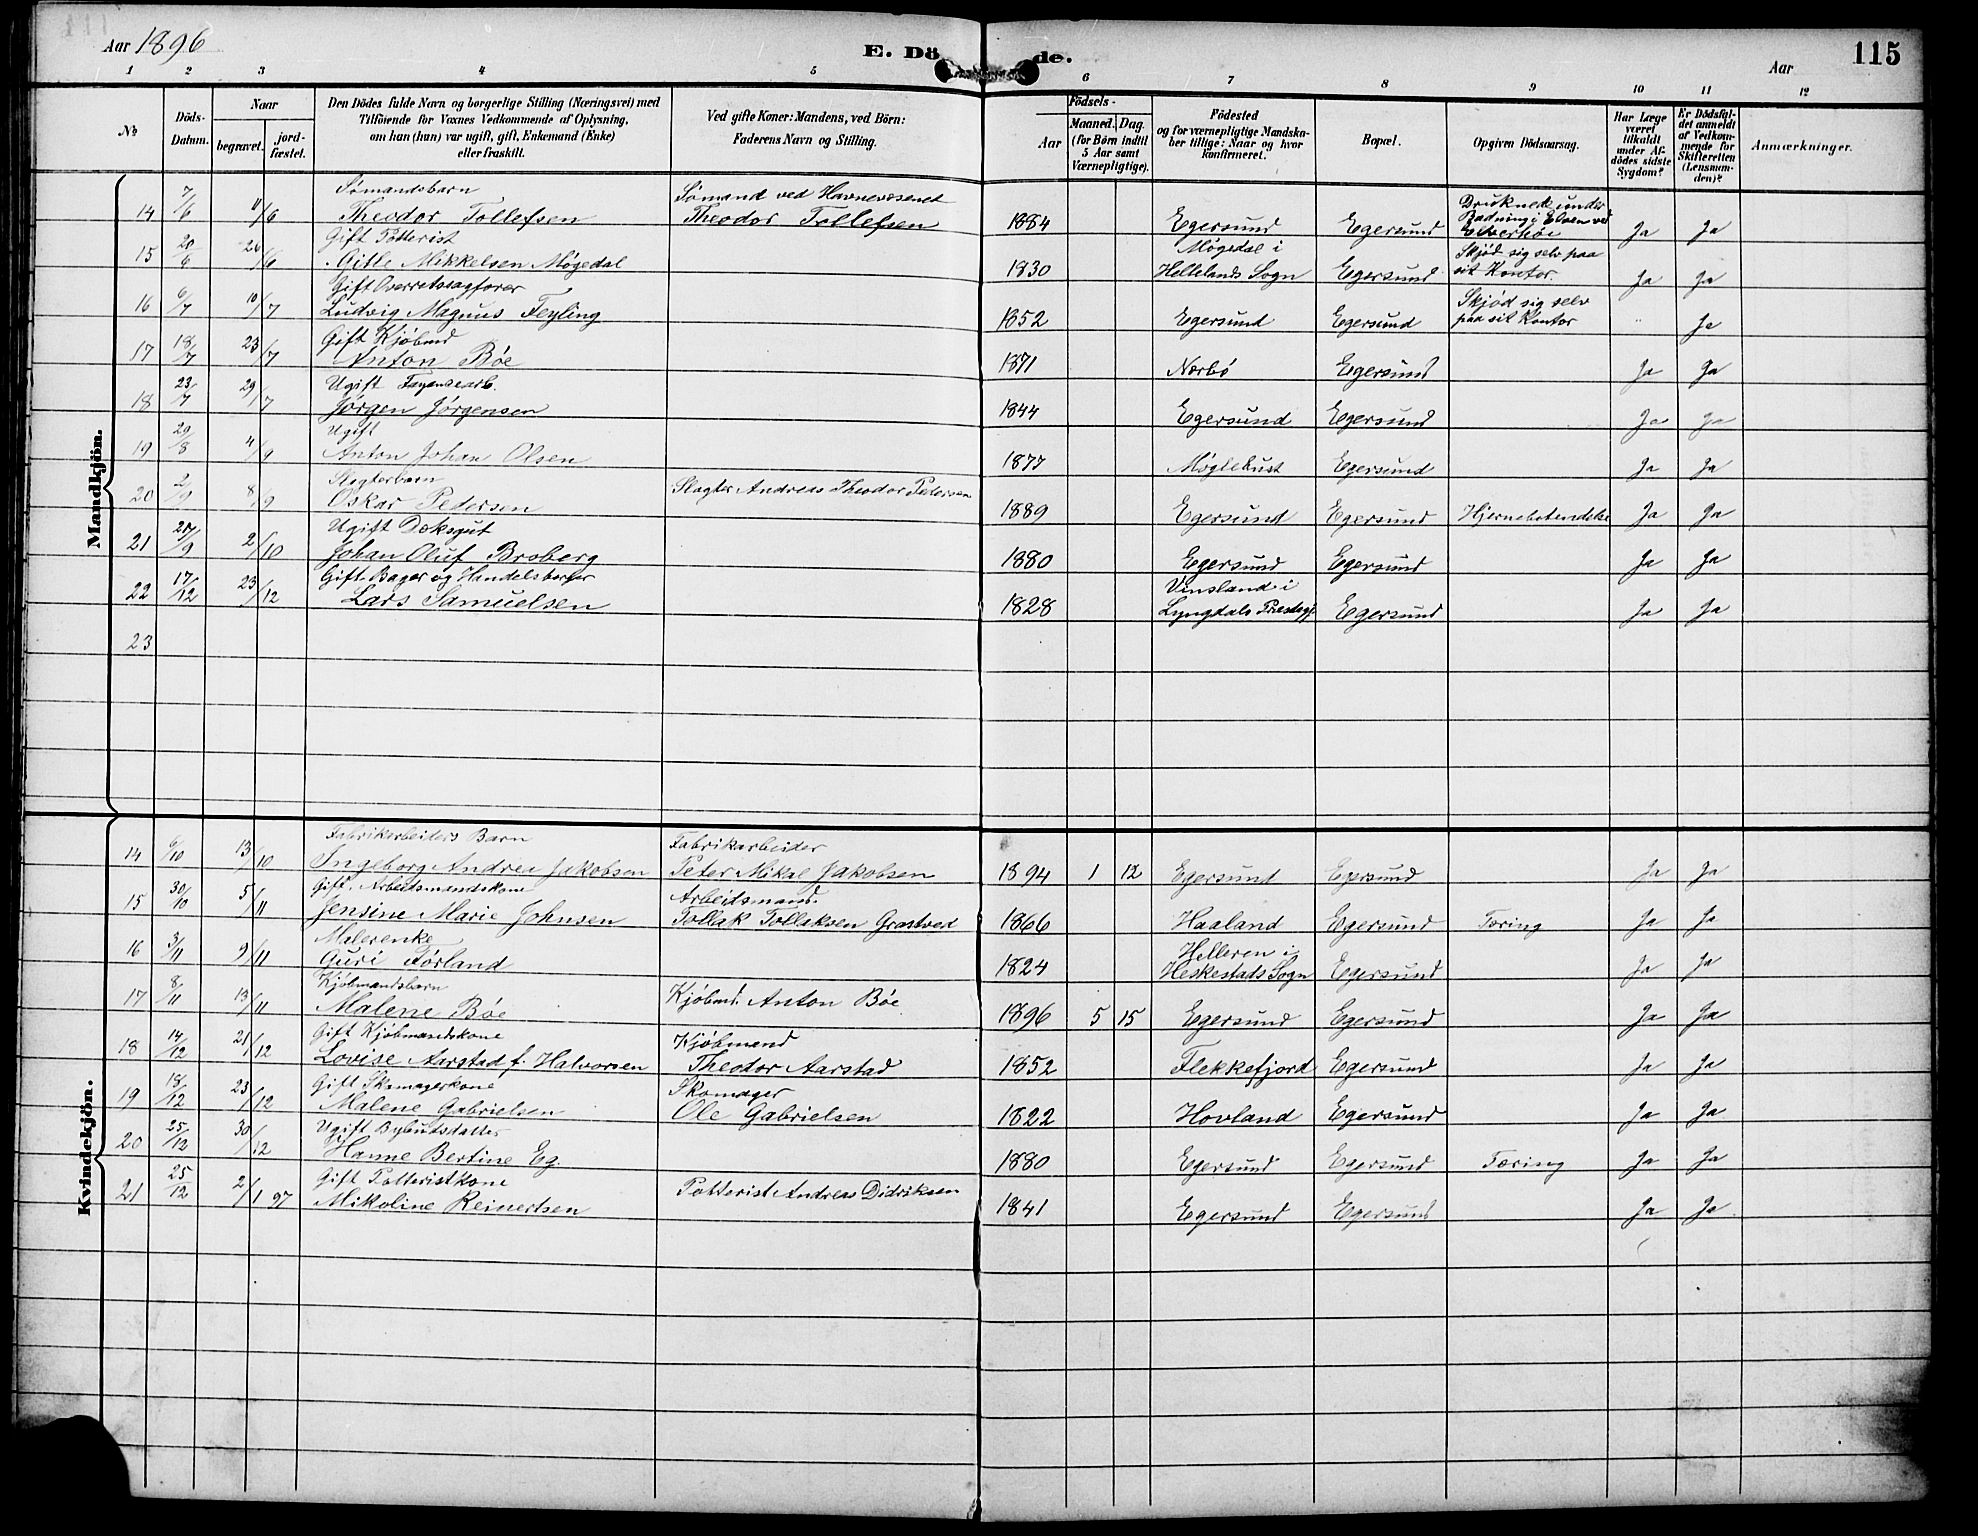 Aar 1896
E. Dö de.
Aar
115
1 2 3 4 5 6 7 8 9 10 11 12
No
Döds-
Datum.
Naar
begravet.
jord-
fæstet.
Den Dödes fulde Navn og borgerlige Stilling (Næringsvei) med
Tilföiende for Voxnes Vedkommende af Oplysning,
om han (hun) var ugift, gift, Enkemand (Enke)
eller fraskilt.
Ved gifte Koner: Mandens, ved Börn:
Faderens Navn og Stilling.
Födsels-
Aar
Maaned. Dag.
(for Børn indtil
5 Aar samt
Værnepligtige).
Födested
og for værnepligtige Mandska-
ber tillige: Naar og hvor
konfirmeret.
Bopæl.
Opgiven Dödsaarsag.
Har Læge
været
tilkaldt
under Af-
dödes sidste
Sygdom?
Er Dödsfal-
det anmeldt
af Vedkom-
mende for
Skifteretten
(Lensman-
den)?
Anmærkninger.
Mandkjön.
Sømandsbarn Sømand ved Havnevæsenet Druknede under
14 7/6 11/6 Theodor Tollefsen Theodor Tollefsen 1884 Egersund Egersund Badning i Elven ved Ja Ja
Gift Potterist Møgedal i Skjød sig selv paa
15 20/6 26/6 Gitle Mikkelsen Møgedal 1830 Hellelands Sogn Egersund sit Kontor. Ja Ja
Gift Overretssagfører Skjød sig selv
16 6/7 10/7 Ludvig Magnus Feyling 1852 Egersund Egersund paa sit Kontor " Ja
Gift Kjøbmd
17 18/7 23/7 Anton Bøe 1871 Nærbø Egersund Ja Ja
Ugift Fayensearb.
18 23/7 29/7 Jørgen Jørgensen 1844 Egersund Egersund Ja Ja
Ugift
19 29/8 4/9 Anton Johan Olsen 1877 Egersund Ja Ja
Slagterbarn
20 2/9 8/9 Oskar Pedersen Slagter Andreas Theodor Pedersen 1889 Egersund Egersund Hjernebetændelse Ja Ja
Ugift Doksgut
21 27/9 2/10 Johan Oluf Broberg 1880 Egersund Egersund Ja Ja
Gift Bager og Handelsborger Vinsland i
22 17/12 23/12 Lars Samuelsen 1828 Lyngdals Præstegj. Egersund Ja Ja
23
Kvindekjön.
Fabrikarbeiders Barn Fabrikarbeider
14 6/10 13/10 Ingeborg Andrea Jakobsen Peter Mikal Jakobsen 1894 1 12 Egersund Egersund Ja Ja
Gift. Arbeidsmandskone Arbeidsmand.
15 30/10 5/11 Jensine Marie Johnsen Tollak Tollaksen Grastved 1866 Haaland Egersund Tæring Ja Ja
Malerenke Helleren i
16 3/11 9/11 Guri Førland 1824 Heskestads Sogn Egersund Ja Ja
Kjøbmandsbarn
17 8/11 13/11 Malene Bøe Kjøbmd. Anton Bøe 1896 5 15 Egersund Egersund Ja Ja
Gift Kjøbmandskone Kjøbmand
18 14/12 21/12 Lovise Aarstad f. Halvorsen Theodor Aarstad 1852 Flekkefjord Egersund Ja Ja
Gift Skomagerkone Skomager
19 18/12 23/12 Malene Gabrielsen Ole Gabrielsen 1822 Hovland Egersund Ja Ja
Ugift Bybudsdatter
20 25/12 30/12 Hanne Bertine Eg. 1880 Egersund Egersund Tæring Ja Ja
Gift Potteristkone
21 25/12 2/1 97 Mikoline Reinertsen Potterist Andreas Didriksen 1841 Egersund Egersund Ja Ja